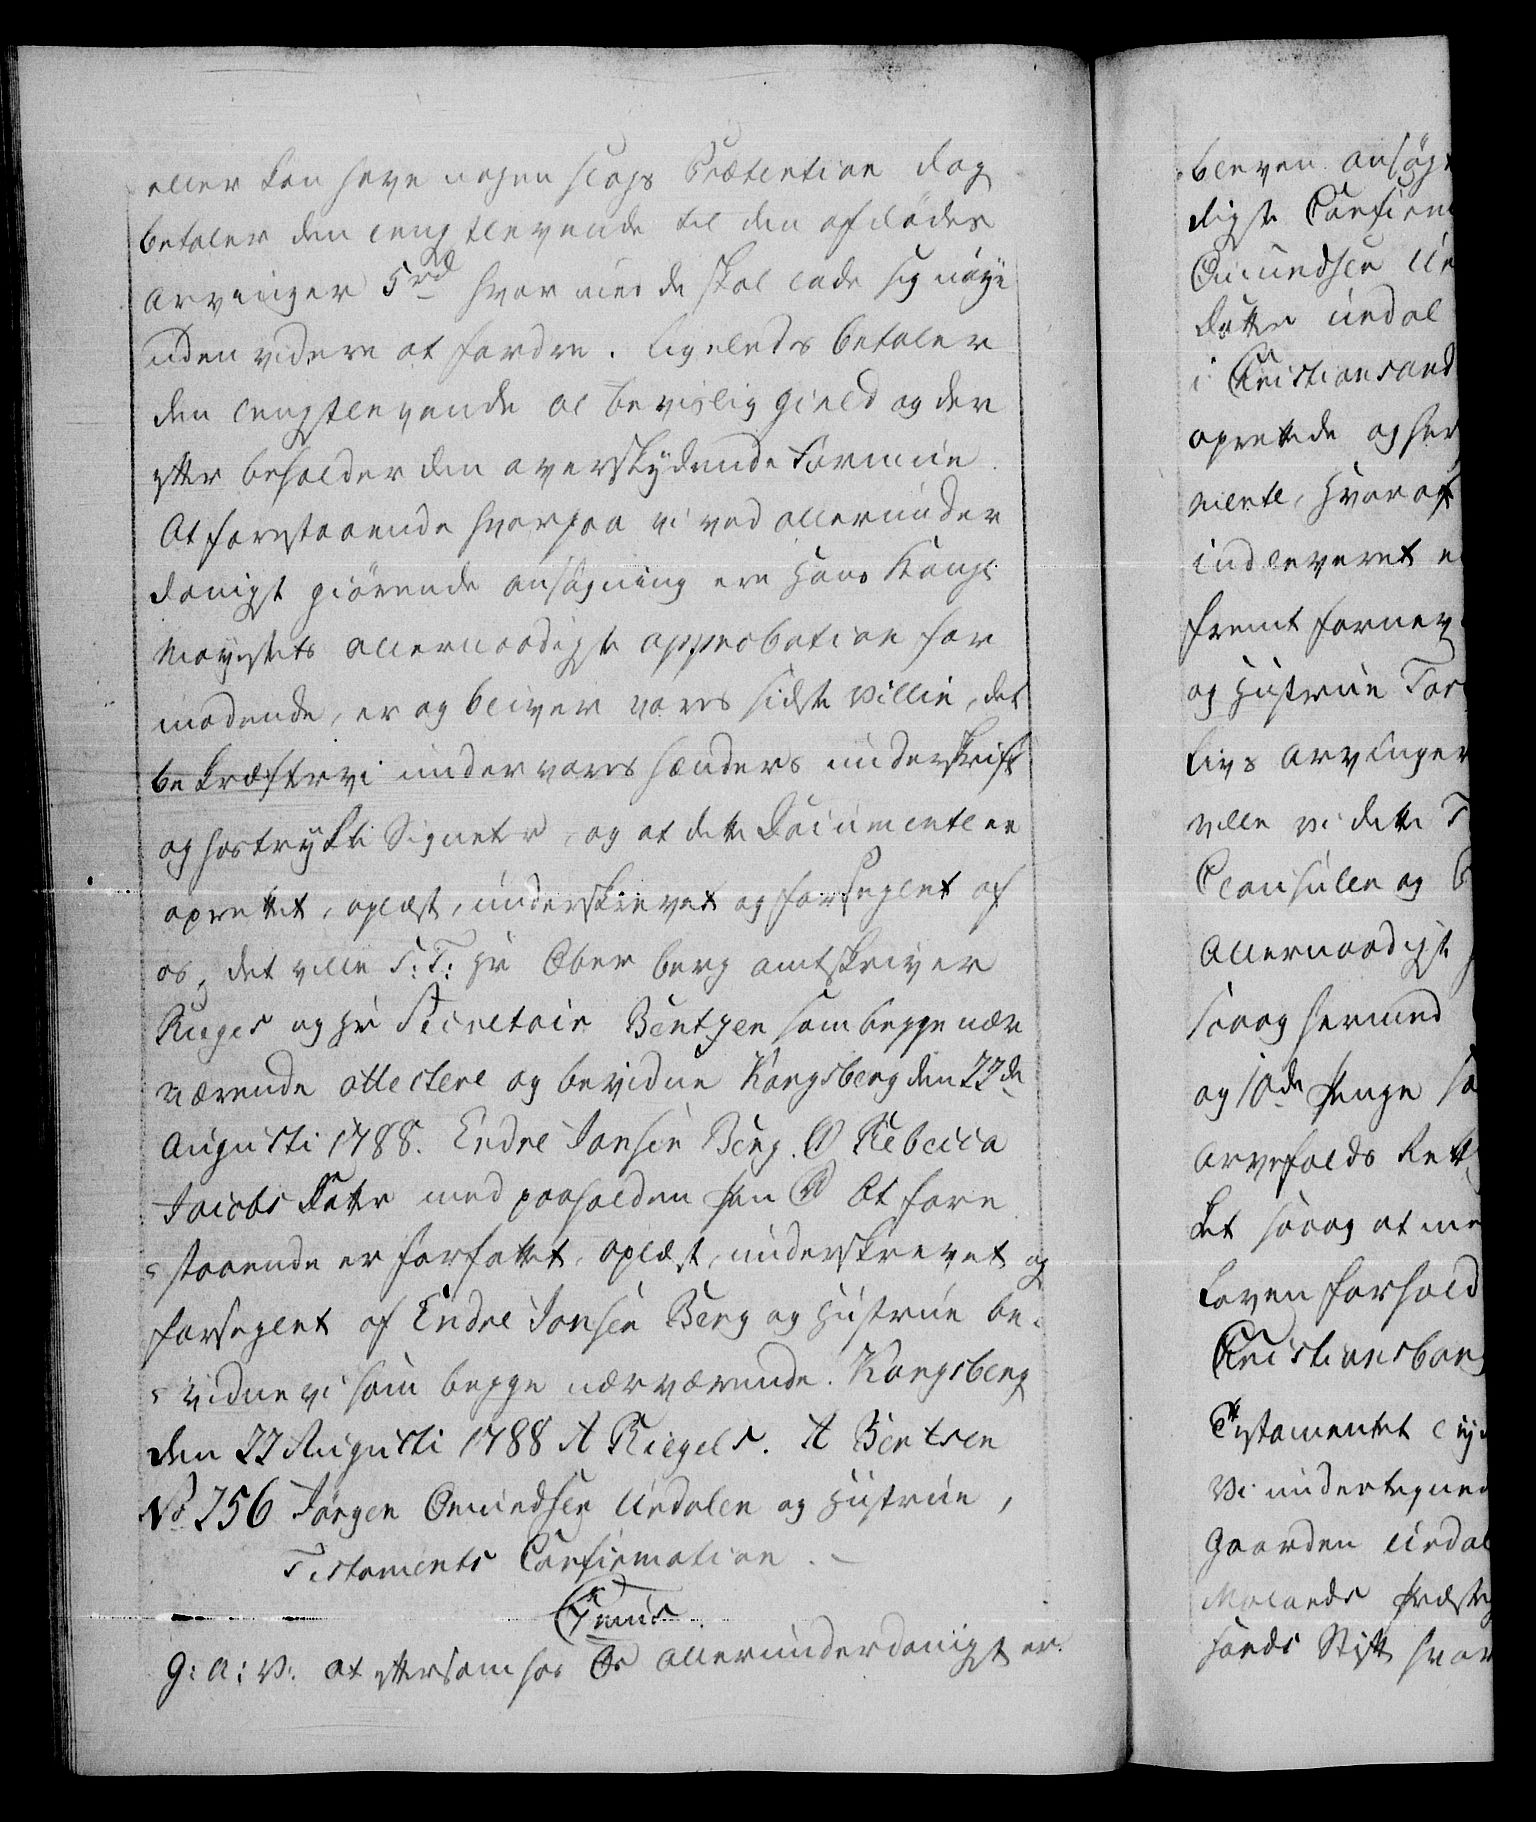 eller kan have nogen slags Prætention dog
betaler den lengstlevende til den afdødes
Arvinger 5 rd hvor med de skal lade sig nøye
uden videre at fordre. Ligeleds betaler
den lengstlevende al bevislig Gield og der
efter beholder den overskydende Formue.
At forestaaende hvorpaa vi ved allerunder
danigst giørende ansøgning ere Hans Kongl
Mayestets allernaadigste approbation for
modende, er og bliver vores sidste Villie, det
bekræfter vi under vores hænders underskrift
og hostrykte Signeter, og at dette Documente er
oprettet, oplæst, underskrevet og forseglet af
os, det ville S: T: Hr Ober berg amtskriver
Riegels og Hr Secretair Bentzen som begge nær
værende attestere og bevidne Kongsberg den 22de
Augusti 1788. Endre Jonsen Berg. Rebecca
Jacobs Datter med paaholden Pen At fore
staaende er forfattet, oplæst, underskrevet og
forseglet af Endre Jonsen Berg og Hustrue be-
vidne vi som begge nærværende. Kongsberg
den 22 Augusti 1788 A Riegels. A Bentsen
No 256 Jørgen Omundsen Uedalen og Hustrue,
Testaments Confirmation.
G: A: V: at eftersom hos Os allerunderdanigst er
bleven ansøgt
digste Confirm
Omundsen Ue
Datter Uedal
i Christiansand
oprettede og her
mente, Hvoraf
indleveret e
fremt fornev
og Hustrue Tor
Livs Arvinger
ville vi dette T
Clausuler og
Allernaadigst
saa og hermed
og 10de Penge
Arvefalds Rett
ket saa og at me
Loven forhold
Christiansborg
Testamentet lyd
Vi undertegned
Gaarden Uedal
Molands Præsteg
sands Stift hvor